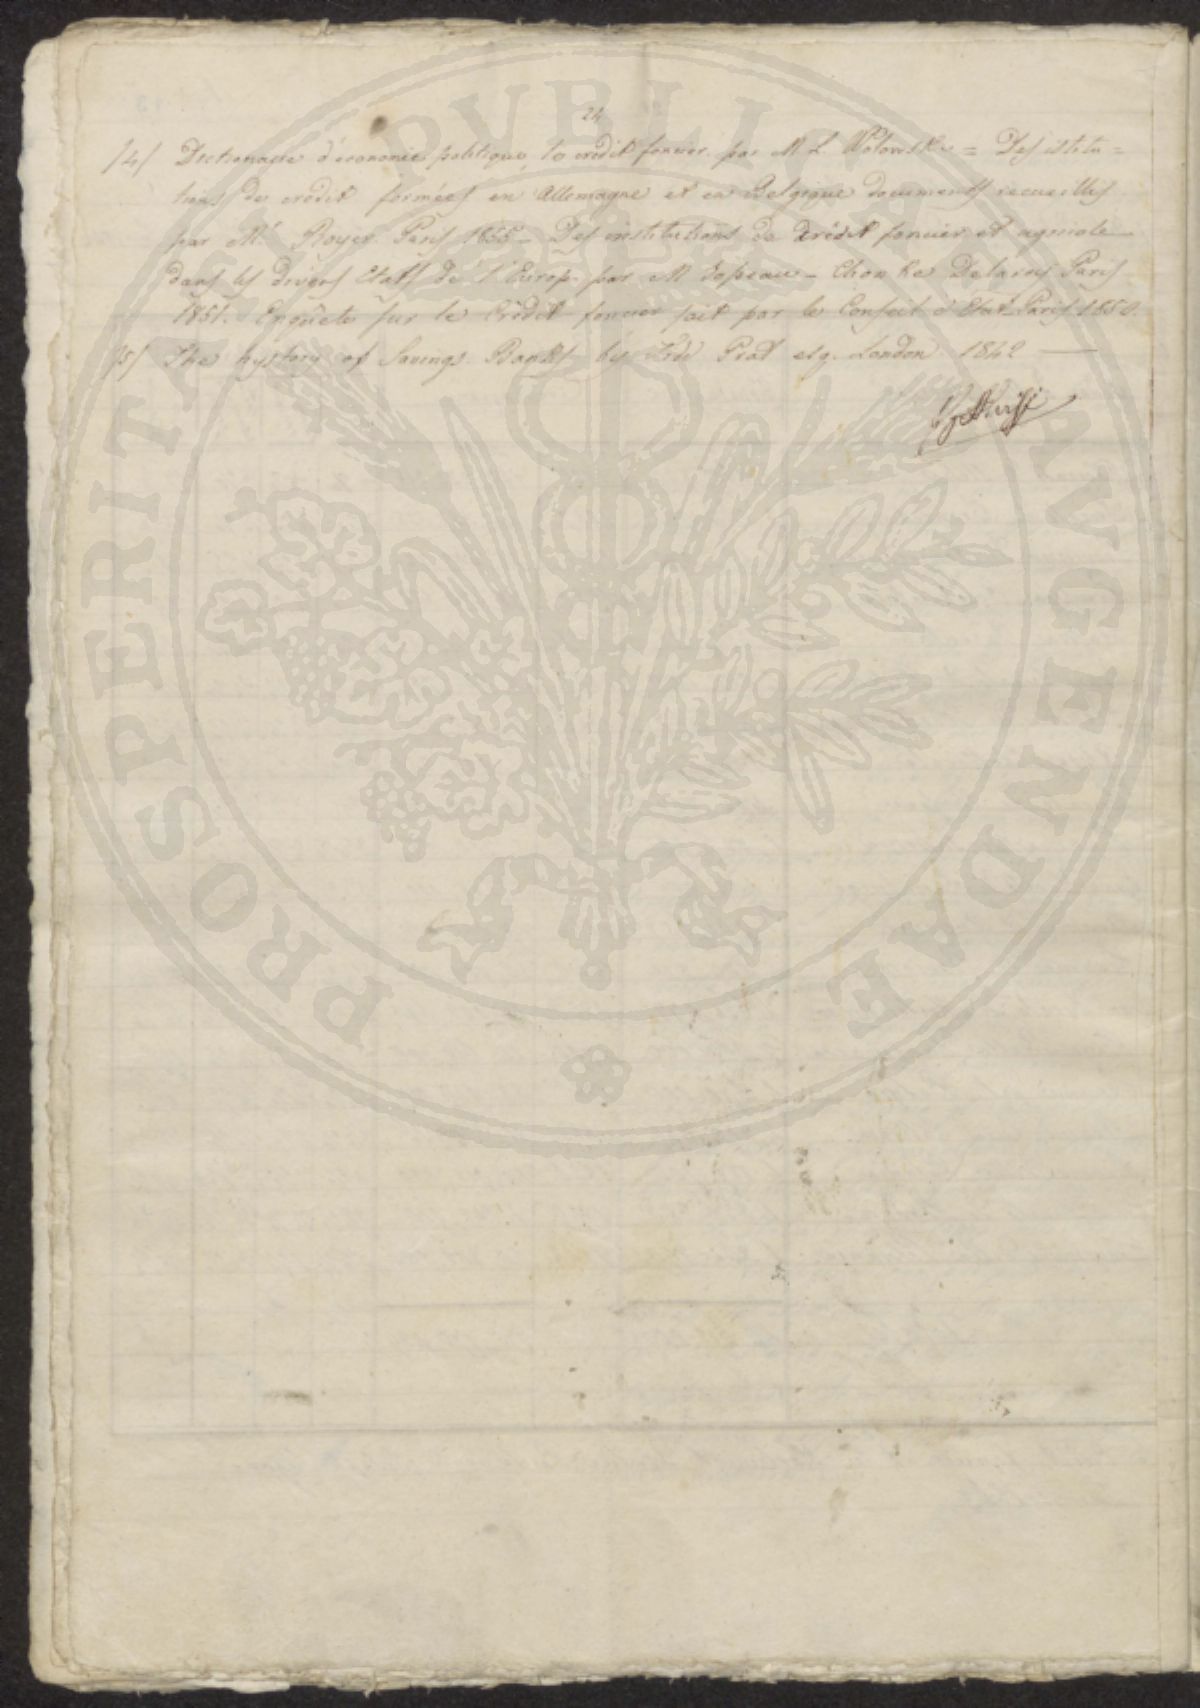 24
/4/ Dictionaire d'économie politique, le crédit foncier par M L Wolowski = Des istitu=
tions de crédit formées en Allemagne et en Belgique documents recueilles
par Mr Royer Paris 1855 – Des institutions de crédit foncier et agricole
dans les divers Etats de l'Europ. par M Josseau – Chonke Delarois Paris
1851. Enquête sur le Crédit foncier fait par le Conseil d'Etat Paris 1850.
/5/ The hystory of Savings Banks by Tidd Prat esq. London 1842
PROSPERITATI PVBLICAE AVGENDAE